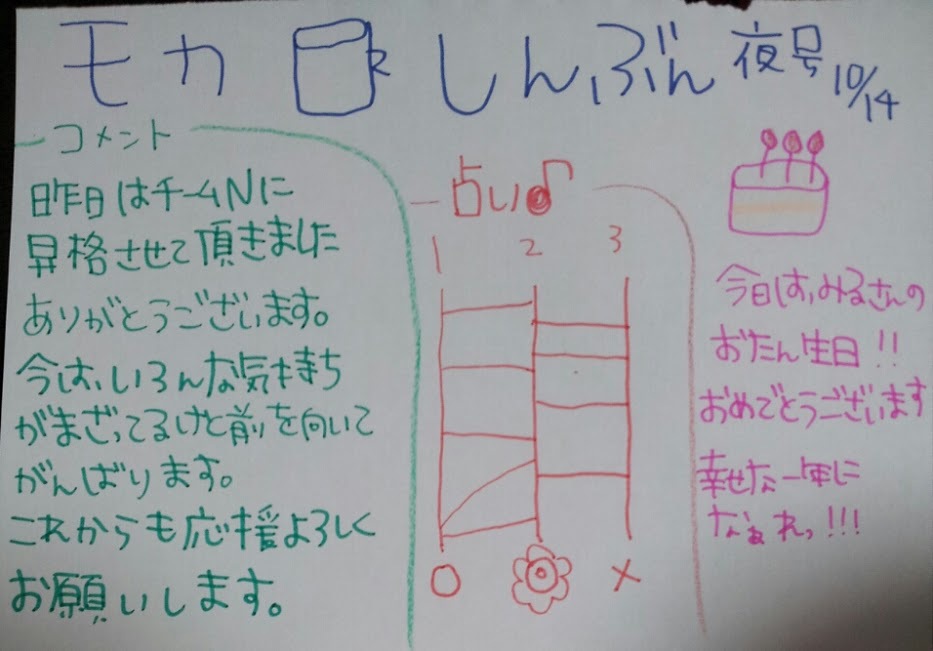 モカ しんぶん 夜号 10/14
コメント
昨日はチームNに
昇格させて頂きました
ありがとうございます。
今は、いろんな気持ち
がまざってるけど前を向いて
がんばります。
これからも応援よろしく
お願いします。
占い
1 2 3
○ ×
今日は、みるさんの
おたん生日!!
おめでとうございます
幸せな一年に
なぁれっ!!!